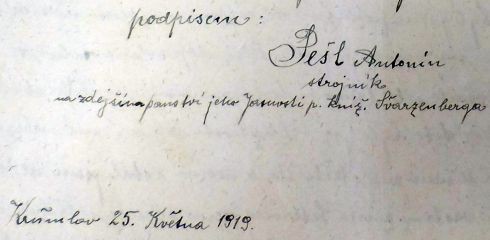 podpisem:
Pešl Antonín
strojník
na zdejším panství jeho Jasnosti p. kníž. Švarzenberga
Krumlov 25. Května 1919.